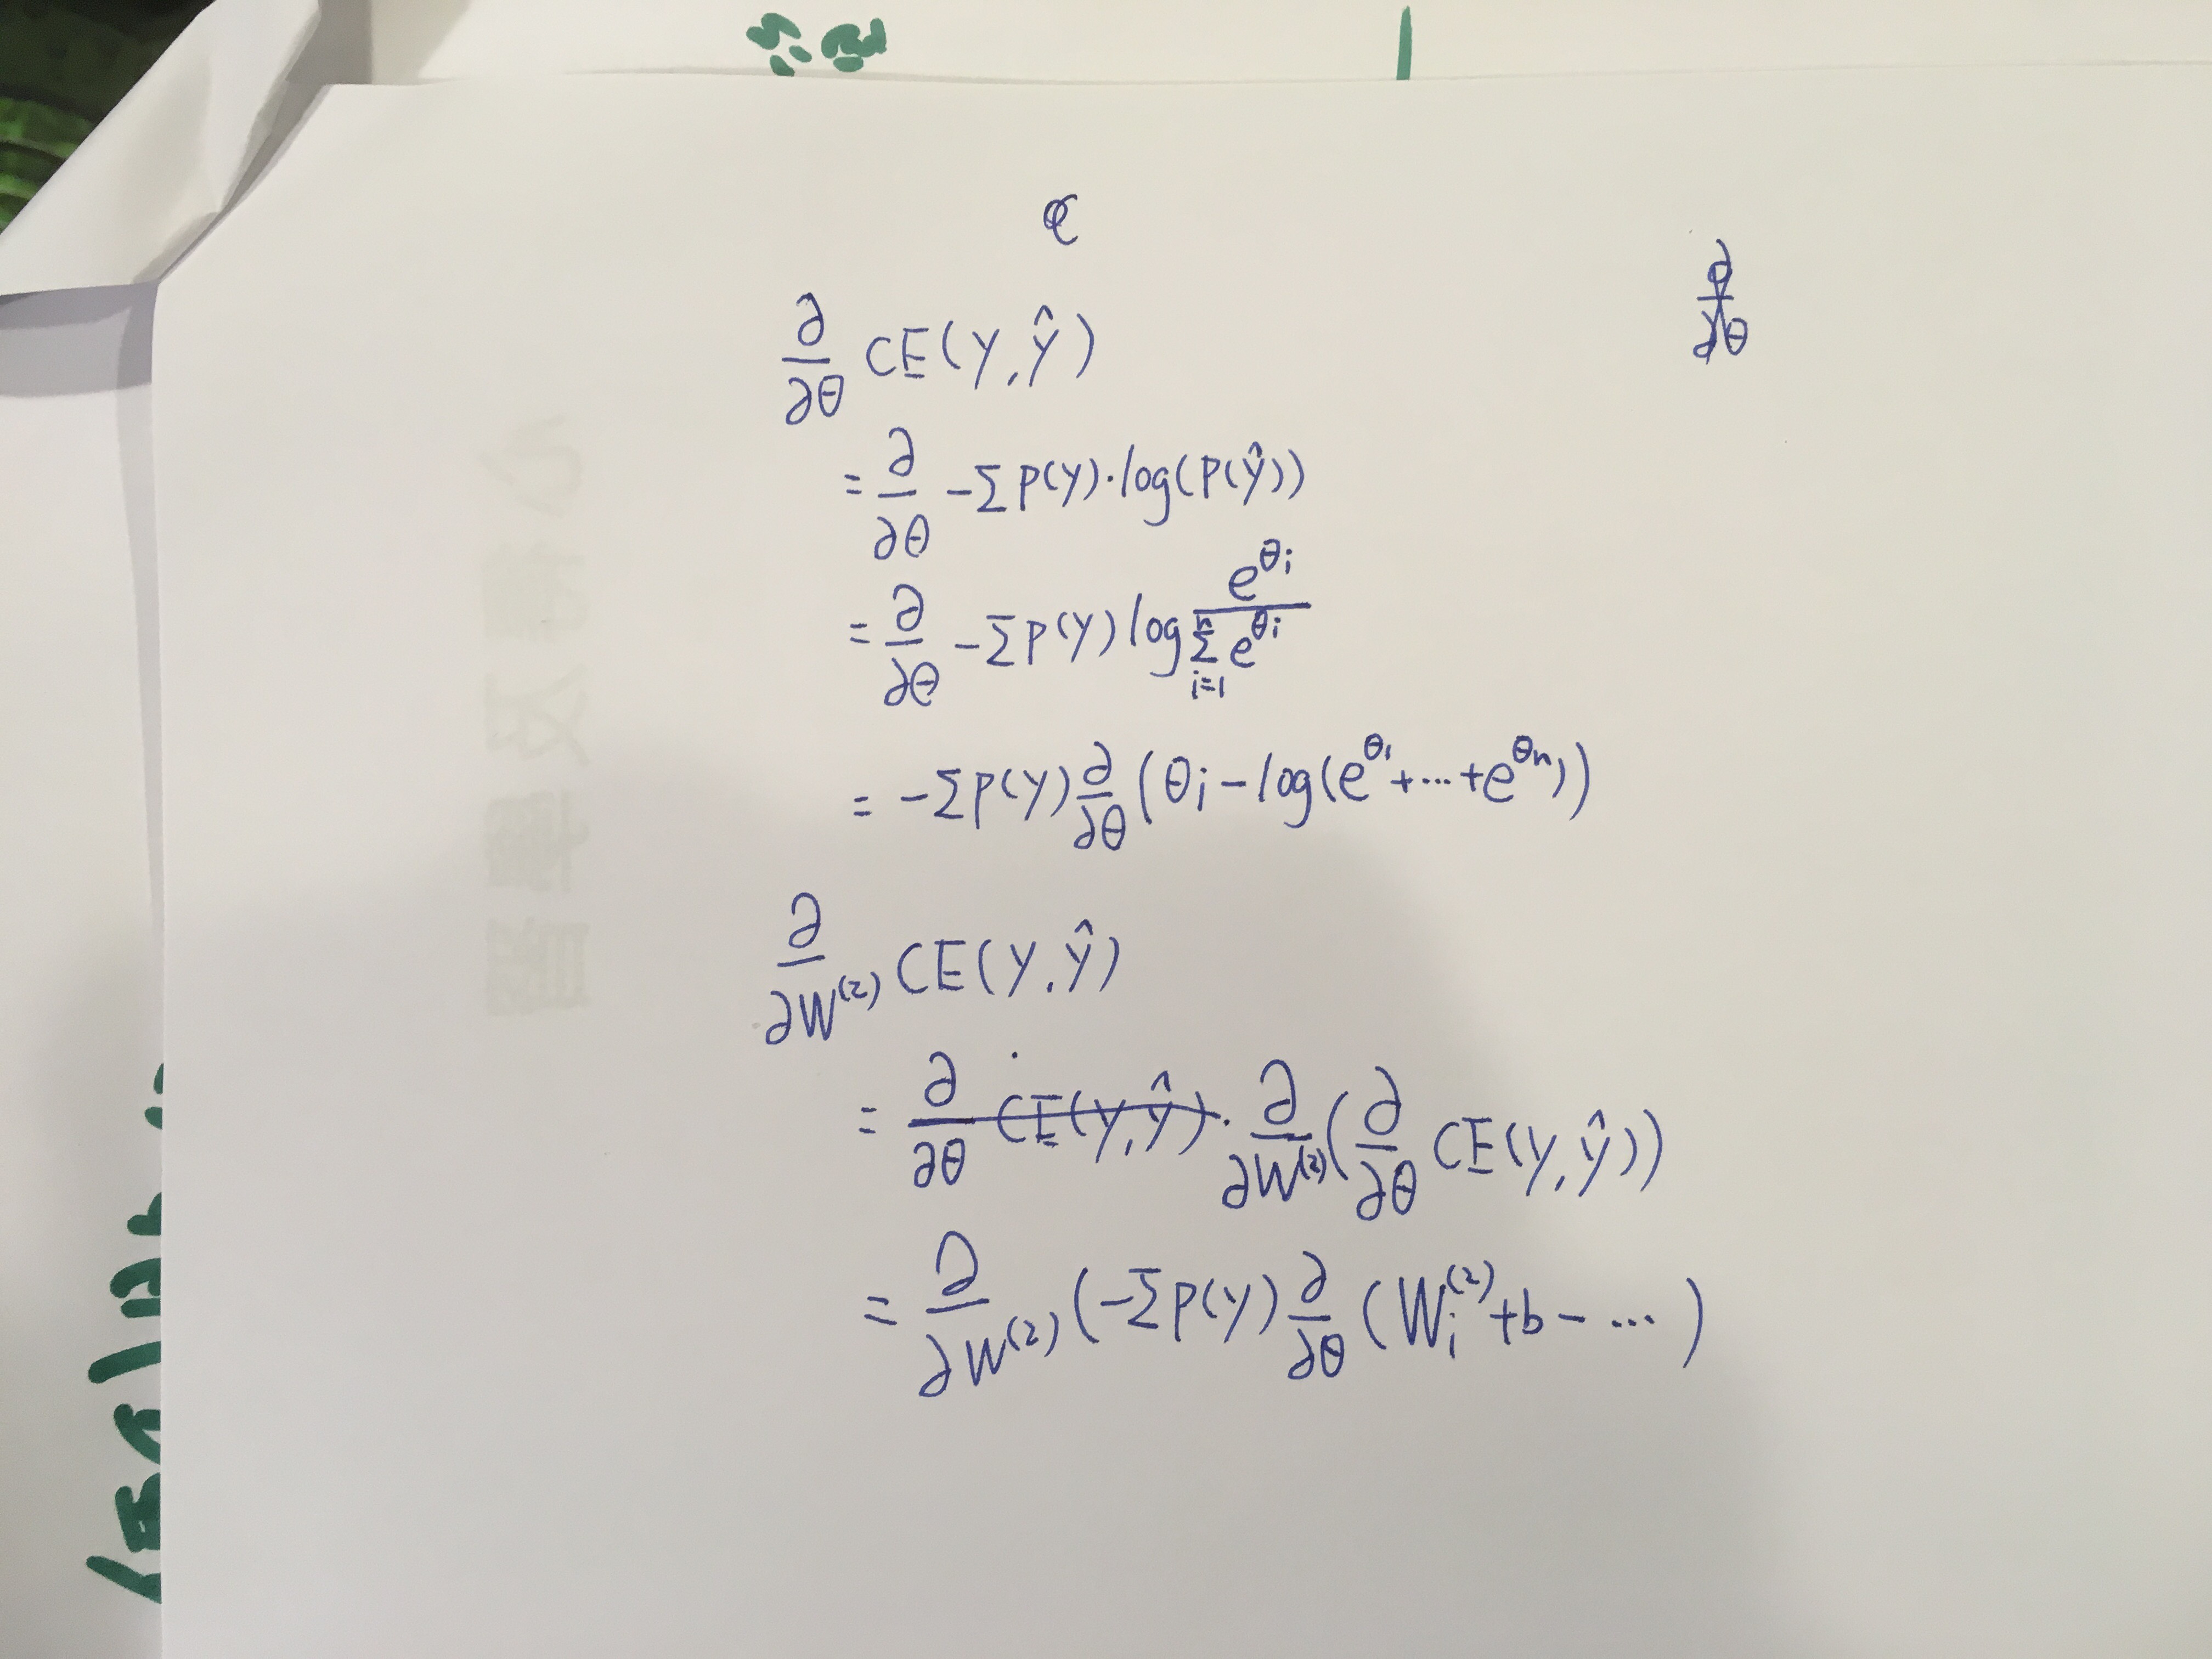 ∂/∂θ CE(y,ŷ)
= ∂/∂θ -Σp(y)·log(p(ŷ))
= ∂/∂θ -Σp(y)log e^θi / Σ_{i=1}^n e^θi
= -Σp(y)∂/∂θ(θi-log(e^θ1+...+e^θn))
∂/∂W(2) CE(y,ŷ)
= ∂/∂θ CE(y,ŷ)·∂/∂W(2)(∂/∂θ CE(y,ŷ))
= ∂/∂W(2)(-Σp(y)∂/∂θ(Wi(2)+b-...)
∂/∂θ
心得及學習